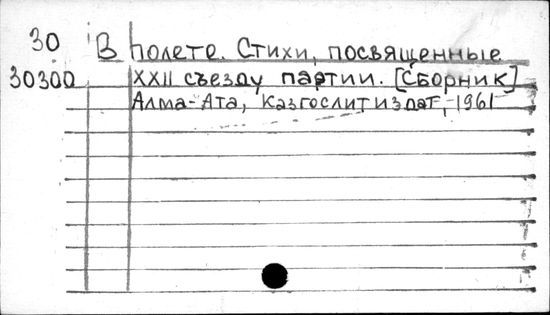 30 В полете. Стихи, посвященные
30300 XXII съезду партии. [Сборник]
Алма-Ата, Казгослитиздат, 1961